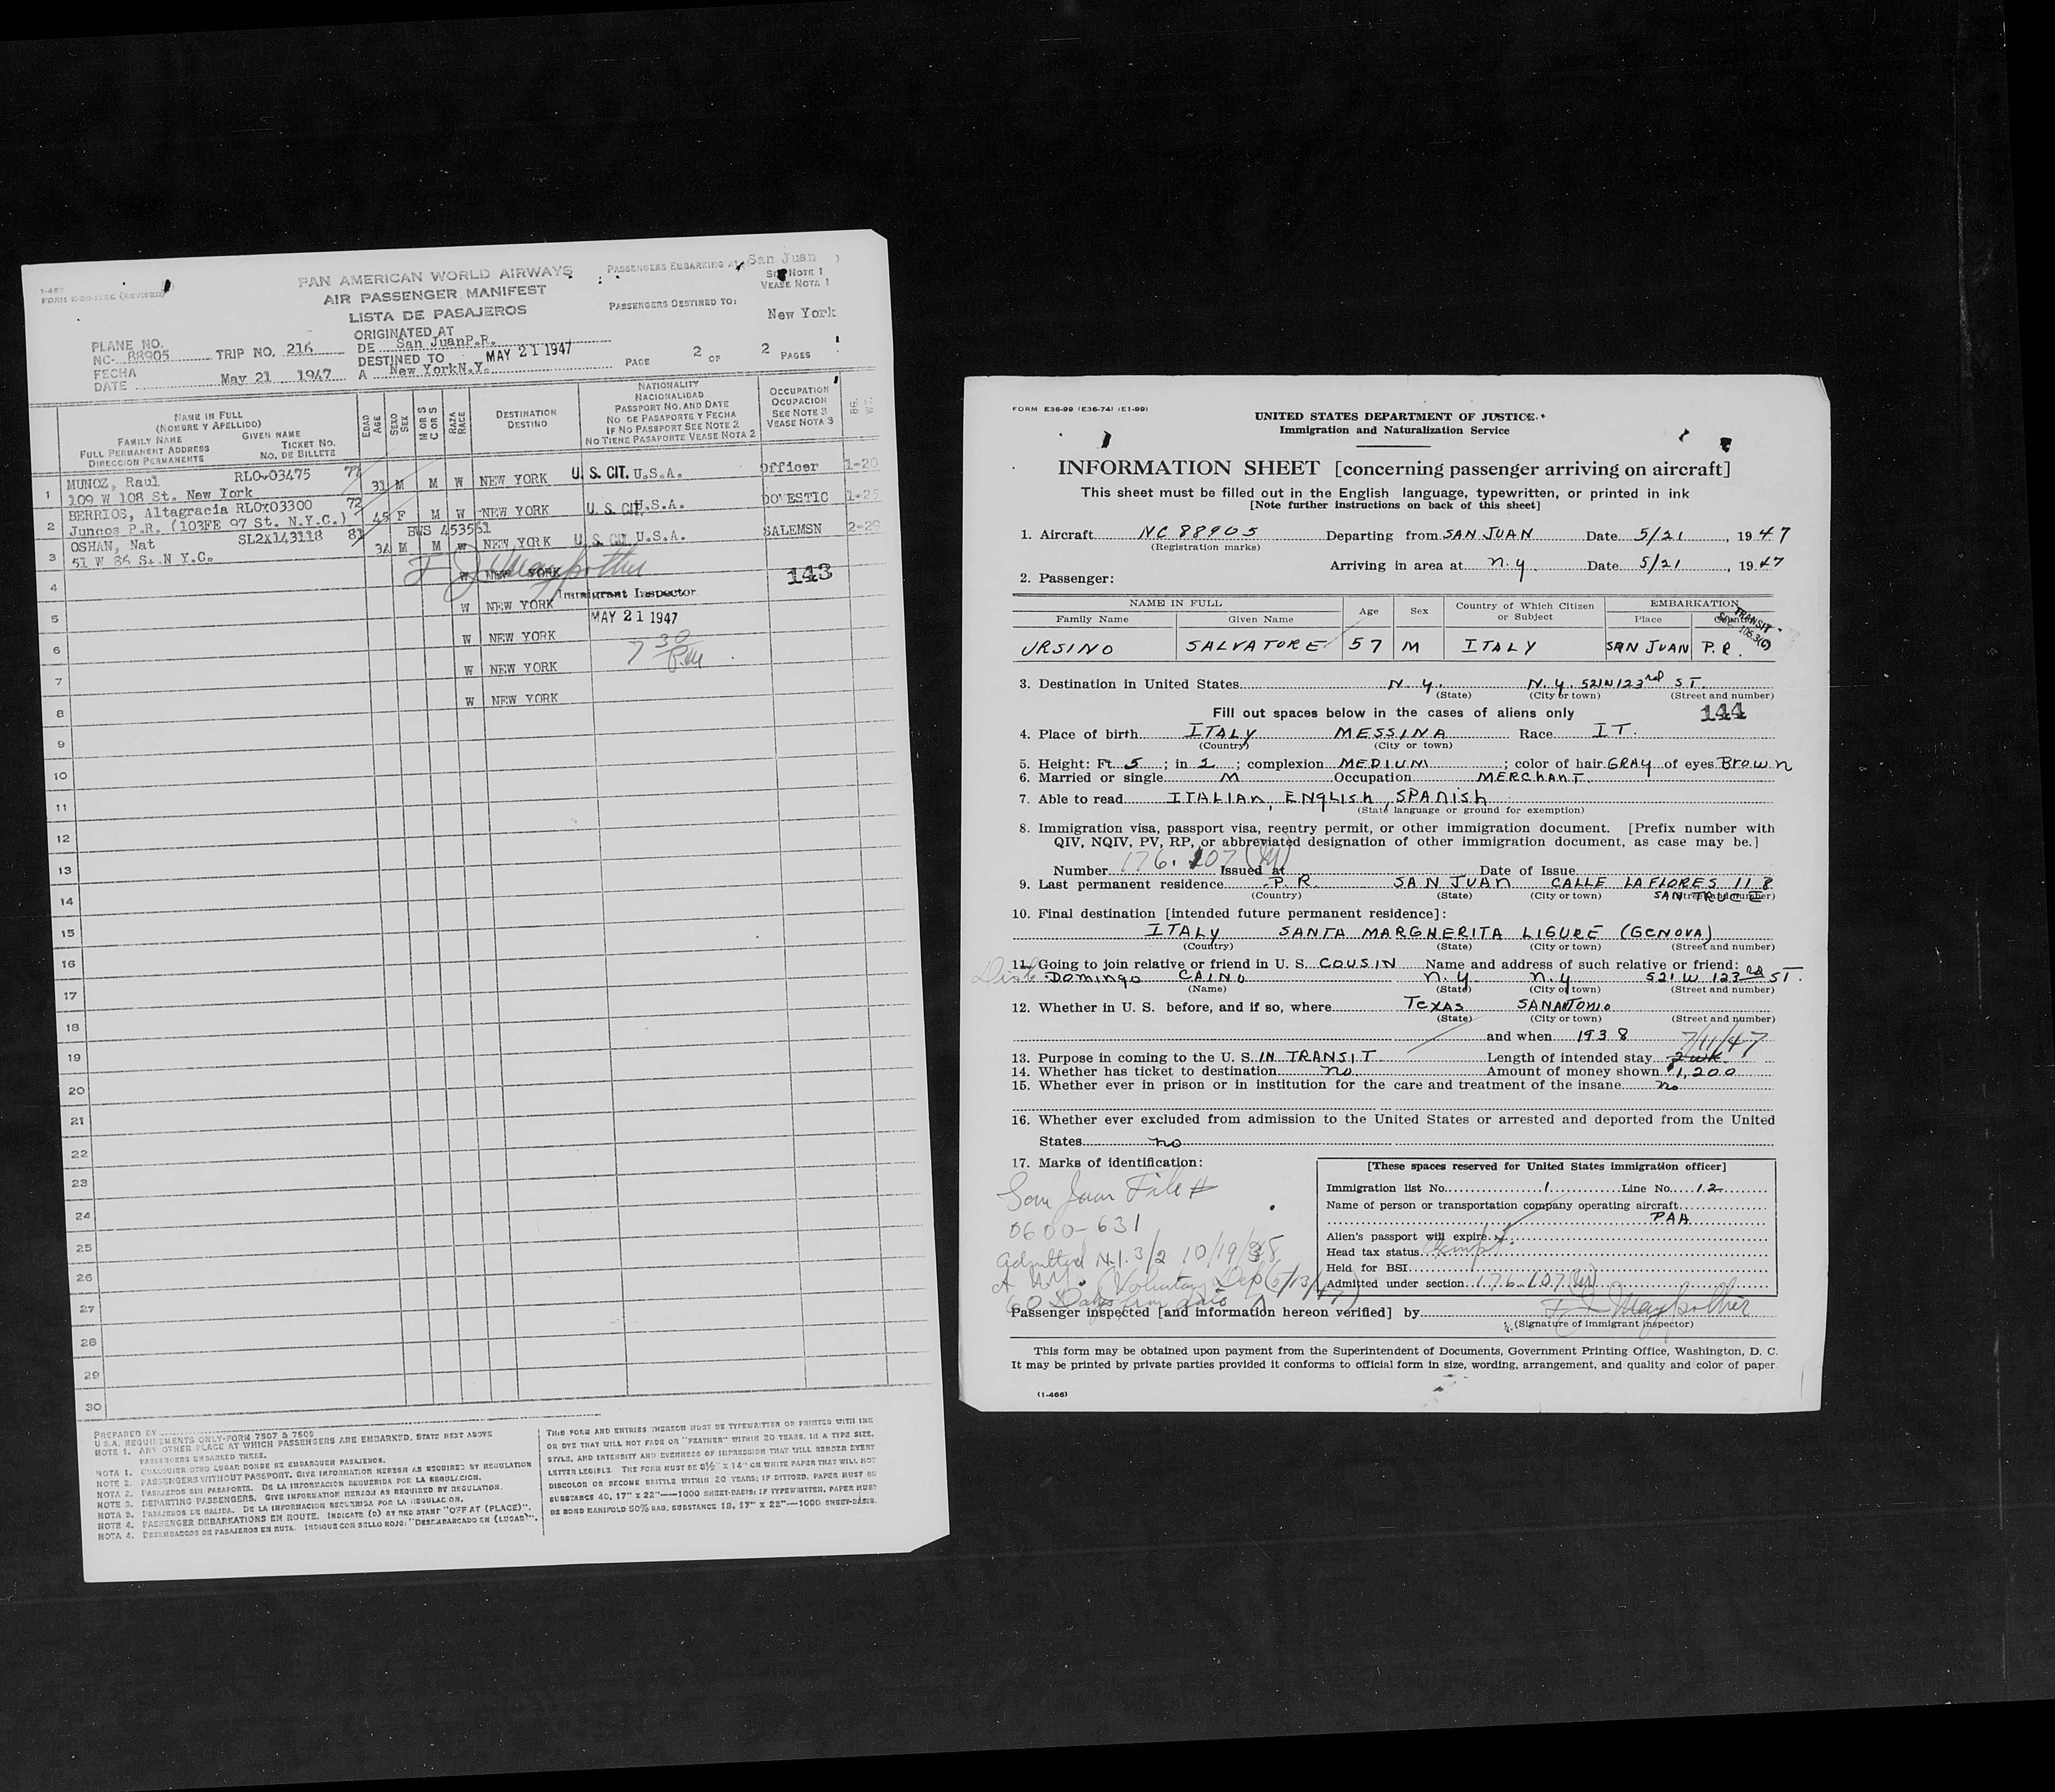 1-467
FORM (REVISED)
PAN AMERICAN WORLD AIRWAYS
AIR PASSENGER MANIFEST
LISTA DE PASAJEROS
PASSENGERS EMBARKING AT San Juan
SEE NOTE 1
VEASE NOTA 1
PASSENGERS DESTINED TO:
New York
PLANE NO.
NC- 88905 TRIP NO. 216
ORIGINATED AT
DE San JuanP.R.
DESTINED TO MAY 21 1947
A New YorkN.Y.
FECHA
DATE May 21 1947
PAGE 2 OF 2 PAGES
NAME IN FULL
(NOMBRE Y APELLIDO)
FAMILY NAME GIVEN NAME
FULL PERMANENT ADDRESS TICKET NO.
DIRECCION PERMANENTE NO. DE BILLETE
EDAD AGE
SEXO SEX
M OR S
C OR S
RAZA RACE
DESTINATION
DESTINO
NATIONALITY
NACIONALIDAD
PASSPORT NO. AND DATE
NO DE PASAPORTE Y FECHA
IF NO PASSPORT SEE NOTE 2
NO TIENE PASAPORTE VEASE NOTA 2
OCCUPATION
OCUPACION
SEE NOTE 3
VEASE NOTA 3
1 MUNOZ, Raul RLO-03475 31 M M W NEW YORK U. S. CIT. U.S.A. Officer 1-20
109 W 108 St. New York
2 BERRIOS, Altagracia RLOx03300 72 45 F M W NEW YORK U. S. CIT. U.S.A. DOMESTIC 1-25
Juncos P.R. (103FE 97 St. N.Y.C.)
BWS 453561
3 OSHAN, Nat SL2X143118 81 34 M M W NEW YORK U. S. CIT. U.S.A. SALEMSN 2-29
51 W 86 St. N Y.C.
4 W NEW YORK 143
Immigrant Inspector
5 W NEW YORK MAY 21 1947
6 W NEW YORK 7 30 P.M.
7 W NEW YORK
8 W NEW YORK
9
10
11
12
13
14
15
16
17
18
19
20
21
22
23
24
25
26
27
28
29
30
PREPARED BY
U.S.A. REQUIREMENTS ONLY-FORM 7507 & 7509
NOTE 1. ANY OTHER PLACE AT WHICH PASSENGERS ARE EMBARKED, STATE NEXT ABOVE
PASSENGERS EMBARKED THERE.
NOTA 1. CUALQUIER OTRO LUGAR DONDE SE EMBARQUEN PASAJEROS.
NOTE 2. PASSENGERS WITHOUT PASSPORT. GIVE INFORMATION HEREON AS REQUIRED BY REGULATION
NOTA 2. PASAJEROS SIN PASAPORTE. DE LA INFORMACION REQUERIDA POR LA REGULACION.
NOTE 3. DEPARTING PASSENGERS. GIVE INFORMATION HEREON AS REQUIRED BY REGULATION.
NOTA 3. PASAJEROS DE SALIDA. DE LA INFORMACION REQUERIDA POR LA REGULACION.
NOTE 4. PASSENGER DEBARKATIONS EN ROUTE. INDICATE (D) BY RED STAMP "OFF AT (PLACE)".
NOTA 4. DESEMBARCOS DE PASAJEROS EN RUTA. INDIQUE CON SELLO ROJO: "DESEMBARCADO EN (LUGAR)".
THIS FORM AND ENTRIES THEREON MUST BE TYPEWRITTEN OR PRINTED WITH INK
OR DYE THAT WILL NOT FADE OR "FEATHER" WITHIN 20 YEARS, IN A TYPE SIZE,
STYLE, AND INTENSITY AND EVENNESS OF IMPRESSION THAT WILL RENDER EVERY
LETTER LEGIBLE. THE FORM MUST BE 8½" X 14" ON WHITE PAPER THAT WILL NOT
DISCOLOR OR BECOME BRITTLE WITHIN 20 YEARS; IF DITTOED, PAPER MUST BE
SUBSTANCE 40, 17" X 22"—1000 SHEET-BASIS; IF TYPEWRITTEN, PAPER MUST
BE BOND MANIFOLD 50% RAG, SUBSTANCE 18, 17" X 22"—1000 SHEET-BASIS.
FORM E36-99 (E36-74) (E1-99)
UNITED STATES DEPARTMENT OF JUSTICE
Immigration and Naturalization Service
INFORMATION SHEET [concerning passenger arriving on aircraft]
This sheet must be filled out in the English language, typewritten, or printed in ink
[Note further instructions on back of this sheet]
1. Aircraft NC 88905 Departing from SAN JUAN Date 5/21, 1947
(Registration marks)
Arriving in area at N.Y. Date 5/21, 1947
2. Passenger:
NAME IN FULL Age Sex Country of Which Citizen or Subject EMBARKATION
Family Name Given Name Place Country
TRANSIT
URSINO SALVATORE 57 M ITALY SAN JUAN P.R.
3. Destination in United States N.Y. N.Y. 521W123rd ST.
(State) (City or town) (Street and number)
Fill out spaces below in the cases of aliens only 144
4. Place of birth ITALY MESSINA Race IT.
(Country) (City or town)
5. Height: Ft. 5; in 2; complexion MEDIUM; color of hair GRAY of eyes Brown
6. Married or single M Occupation MERCHANT.
7. Able to read ITALIAN, ENGLISH, SPANISH
(State language or ground for exemption)
8. Immigration visa, passport visa, reentry permit, or other immigration document. [Prefix number with
QIV, NQIV, PV, RP, or abbreviated designation of other immigration document, as case may be.]
Number 176.107 (M) Issued at Date of Issue
9. Last permanent residence P.R. SAN JUAN CALLE LA FLORES 118
SANTRUCE
(Country) (State) (City or town) (Street and number)
10. Final destination [intended future permanent residence]:
ITALY SANTA MARGHERITA LIGURE (GENOVA)
(Country) (State) (City or town) (Street and number)
11. Going to join relative or friend in U. S. COUSIN Name and address of such relative or friend:
Domingo CAINO N.Y. N.Y. 521 W. 123rd ST.
(Name) (State) (City or town) (Street and number)
12. Whether in U. S. before, and if so, where TEXAS SANANTONIO
(State) (City or town) (Street and number)
and when 1938 7/11/47
13. Purpose in coming to the U. S. IN TRANSIT Length of intended stay 2 wk.
14. Whether has ticket to destination no. Amount of money shown $1,200
15. Whether ever in prison or in institution for the care and treatment of the insane no
16. Whether ever excluded from admission to the United States or arrested and deported from the United
States no
17. Marks of identification:
San Juan File #
0600-631
Admitted N.Y. 3/2 10/19/38
Voluntary Dep (6/13/47)
60 Days from
[These spaces reserved for United States immigration officer]
Immigration list No. 1 Line No. 12
Name of person or transportation company operating aircraft
PAA
Alien's passport will expire
Head tax status Exempt.
Held for BSI
Admitted under section 176.107 (M)
Passenger inspected [and information hereon verified] by
(Signature of immigrant inspector)
This form may be obtained upon payment from the Superintendent of Documents, Government Printing Office, Washington, D. C.
It may be printed by private parties provided it conforms to official form in size, wording, arrangement, and quality and color of paper
(1-466)